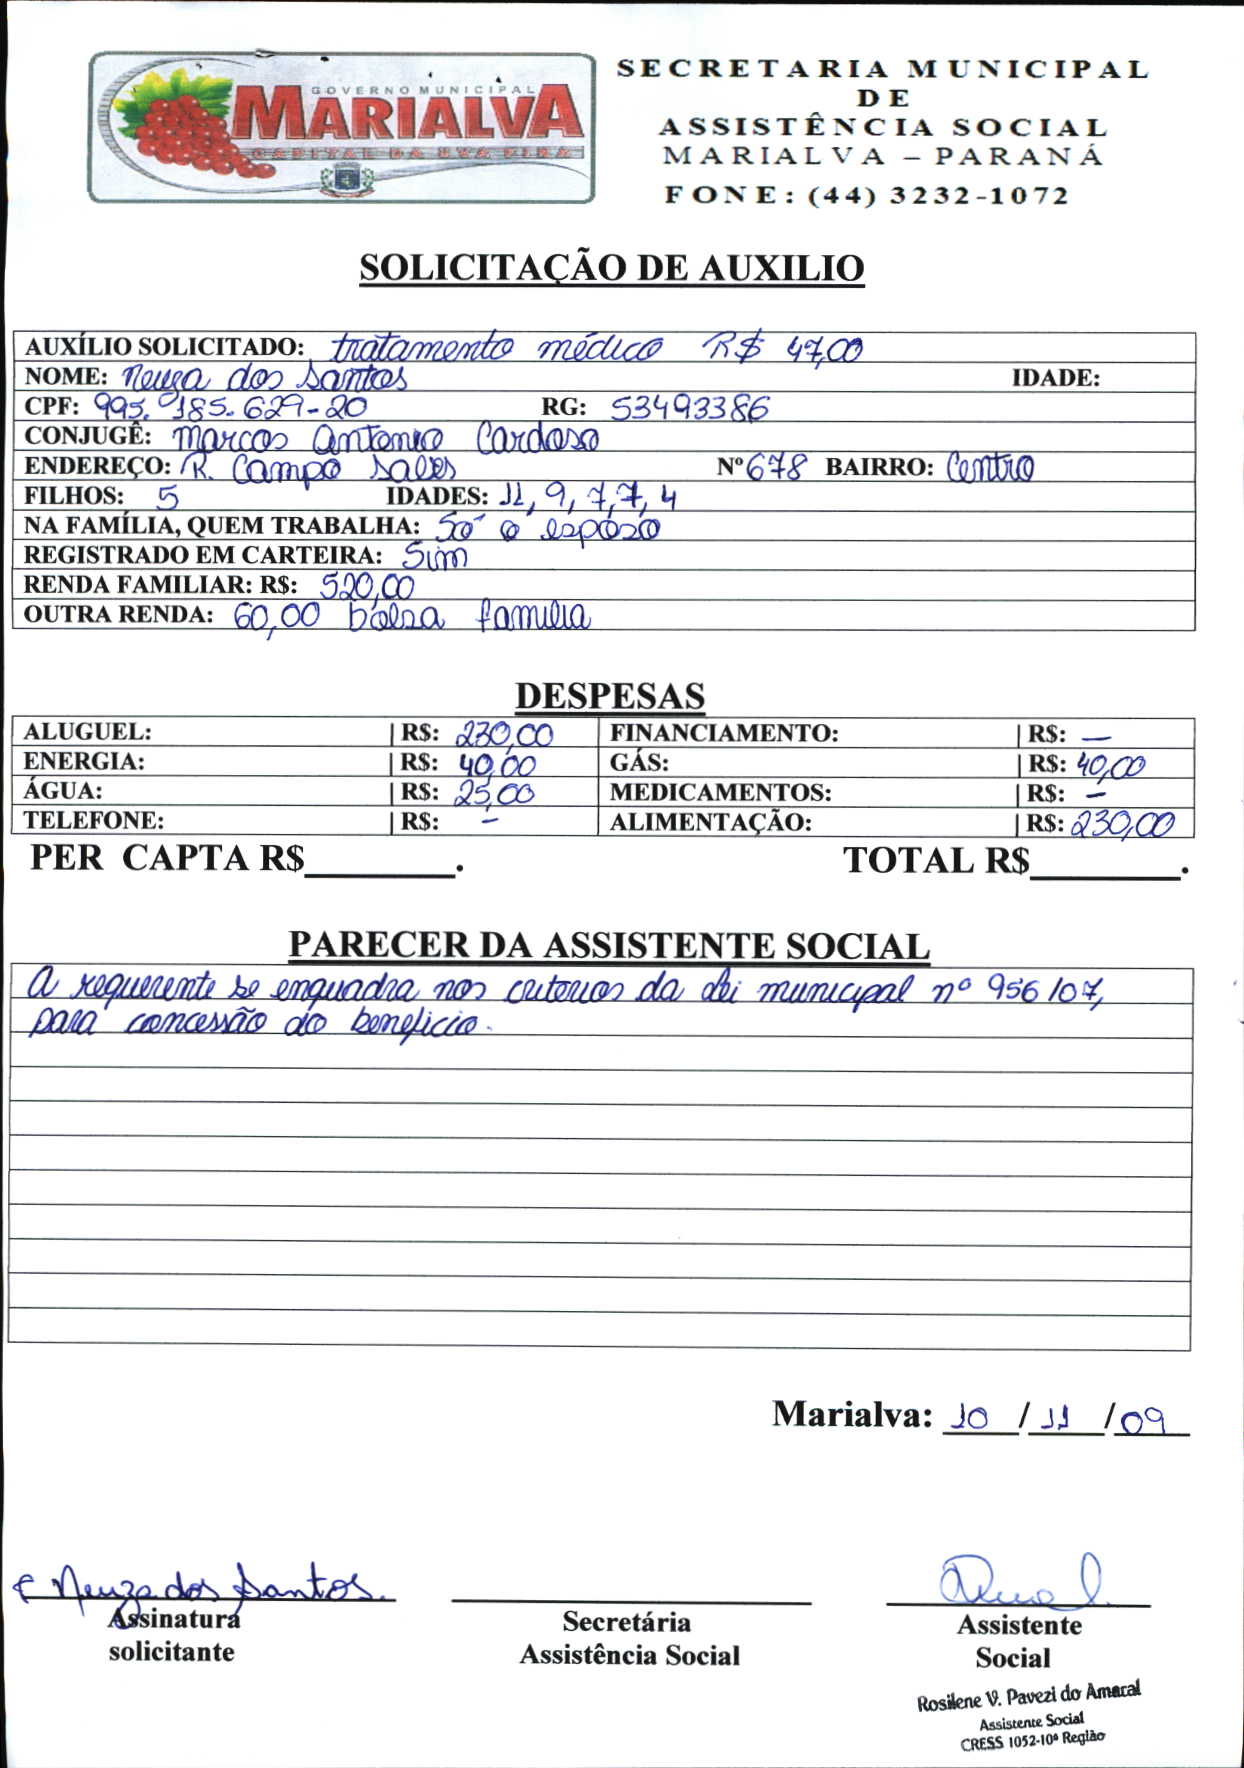 GOVERNO MUNICIPAL
MARIALVA
CAPITAL DA UVA FINA
SECRETARIA MUNICIPAL
DE
ASSISTÊNCIA SOCIAL
MARIALVA – PARANÁ
FONE: (44) 3232-1072
SOLICITAÇÃO DE AUXILIO
AUXÍLIO SOLICITADO: tratamento médico R$ 47,00
NOME: Neuza dos Santos IDADE:
CPF: 995.185.629-20 RG: 53493386
CONJUGÊ: Marcos Antonio Cardoso
ENDEREÇO: R. Campo Sales Nº 678 BAIRRO: Centro
FILHOS: 5 IDADES: 11, 9, 7, 7, 4
NA FAMÍLIA, QUEM TRABALHA: Só o esposo
REGISTRADO EM CARTEIRA: Sim
RENDA FAMILIAR: R$: 520,00
OUTRA RENDA: 60,00 bolsa família
DESPESAS
ALUGUEL: | R$: 230,00 FINANCIAMENTO: | R$: —
ENERGIA: | R$: 40,00 GÁS: | R$: 40,00
ÁGUA: | R$: 25,00 MEDICAMENTOS: | R$: –
TELEFONE: | R$: – ALIMENTAÇÃO: | R$: 230,00
PER CAPTA R$________. TOTAL R$________.
PARECER DA ASSISTENTE SOCIAL
A requerente se enquadra nos criterios da lei municipal nº 956/07,
para concessão do beneficio.
Marialva: 10 / 11 / 09
Neuza dos Santos.
Assinatura solicitante
Secretária Assistência Social
Assistente Social
Rosilene V. Pavezi do Amaral
Assistente Social
CRESS 1052-10ª Região